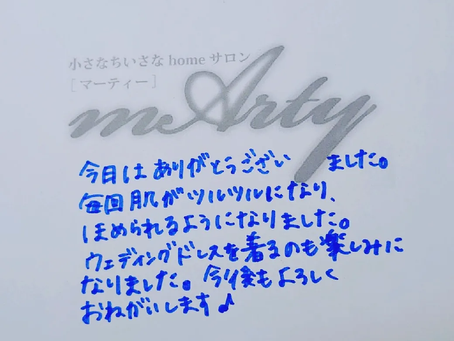 小さなちいさな home サロン
[マーティー]
mArty
今日はありがとうござい ました。
毎回肌がツルツルになり、
ほめられるようになりました。
ウェディングドレスを着るのも楽しみに
なりました。今後もよろしく
おねがいします♪